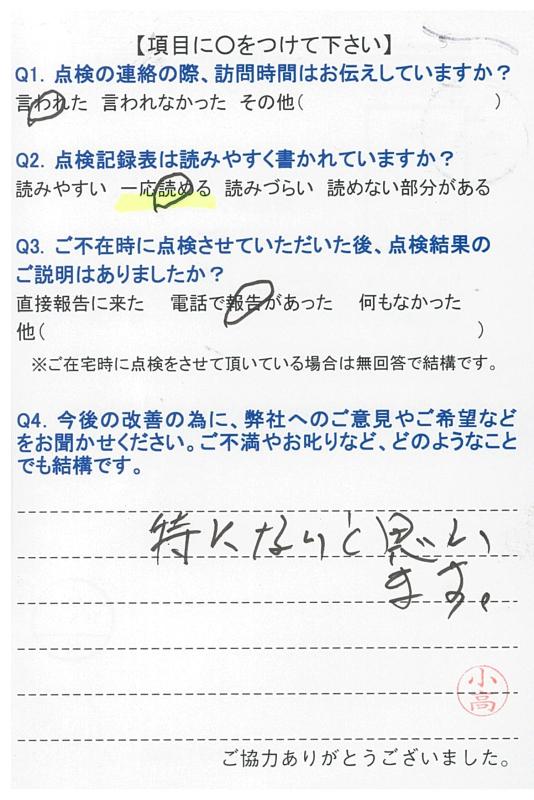 【項目に〇をつけて下さい】
Q1. 点検の連絡の際、訪問時間はお伝えしていますか？
言われた 言われなかった その他(　　　)
Q2. 点検記録表は読みやすく書かれていますか？
読みやすい 一応読める 読みづらい 読めない部分がある
Q3. ご不在時に点検させていただいた後、点検結果の
ご説明はありましたか？
直接報告に来た 電話で報告があった 何もなかった
他(　　　)
※ご在宅時に点検をさせて頂いている場合は無回答で結構です。
Q4. 今後の改善の為に、弊社へのご意見やご希望など
をお聞かせください。ご不満やお叱りなど、どのようなこと
でも結構です。
特にないと思い
ます。
小高
ご協力ありがとうございました。